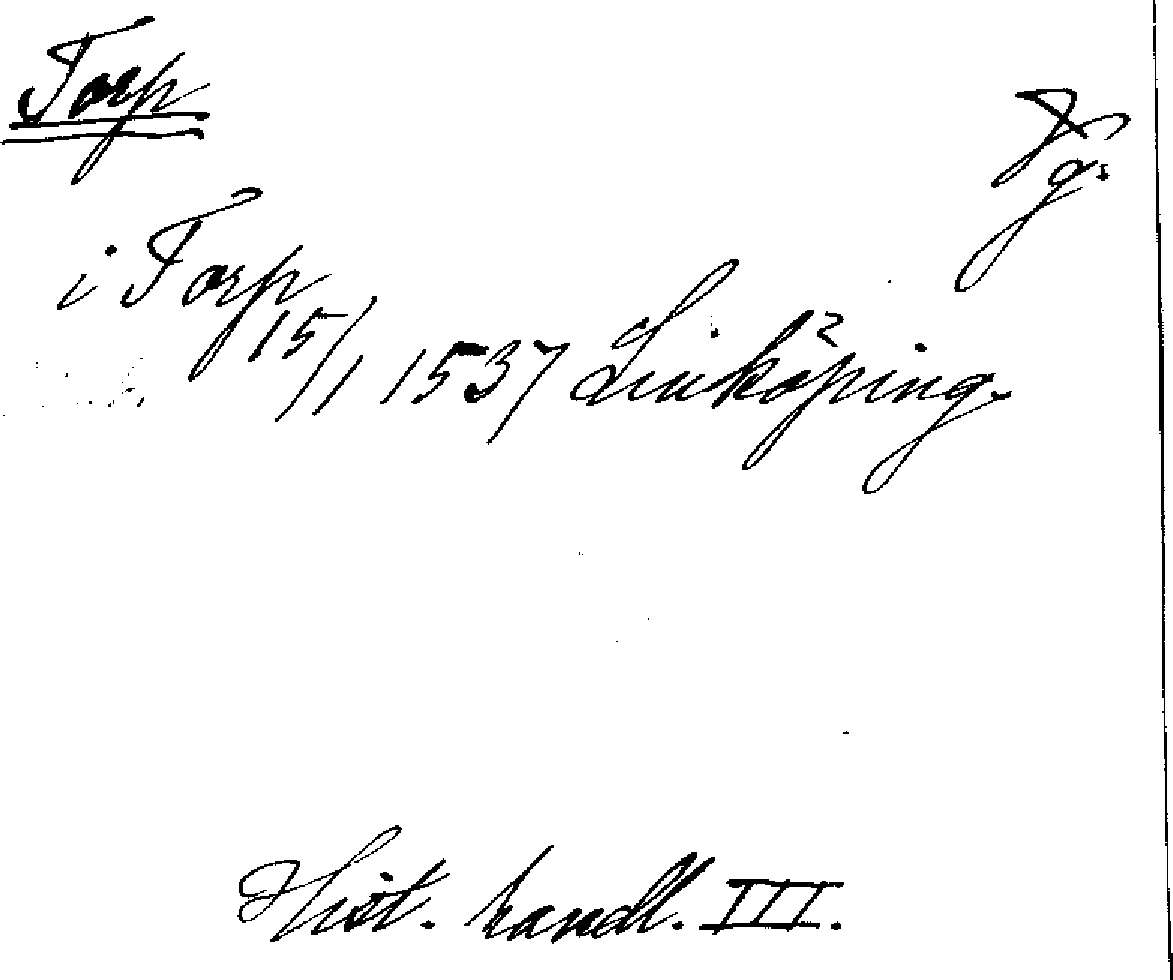 Torp
i Torp
15/1 1537 Linköping.
Hist. handl. III.